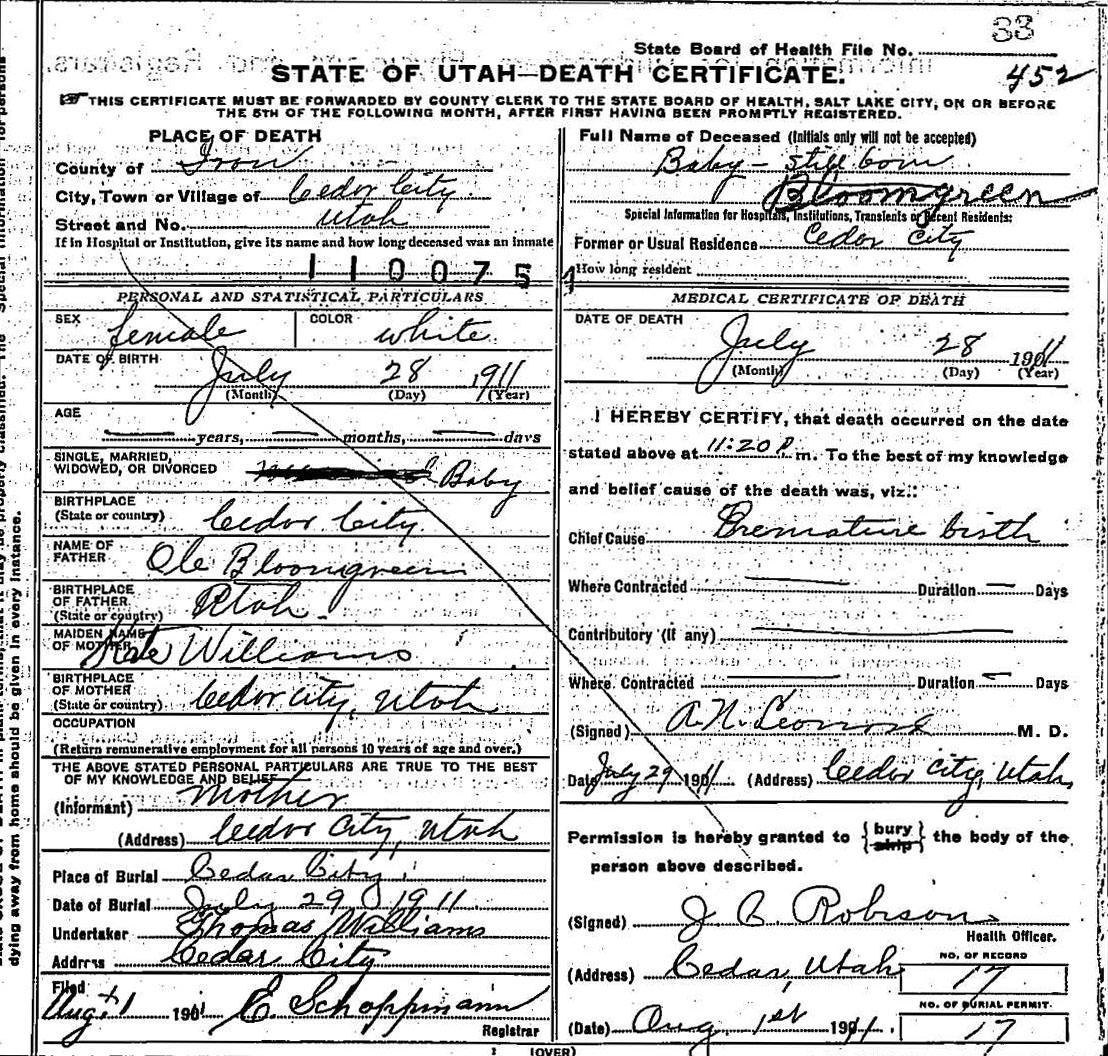 33
State Board of Health File No.
STATE OF UTAH—DEATH CERTIFICATE.
452
THIS CERTIFICATE MUST BE FORWARDED BY COUNTY CLERK TO THE STATE BOARD OF HEALTH, SALT LAKE CITY, ON OR BEFORE
THE 5TH OF THE FOLLOWING MONTH, AFTER FIRST HAVING BEEN PROMPTLY REGISTERED.
PLACE OF DEATH
County of Iron
City, Town or Village of Cedar City
Street and No. Utah
If in Hospital or Institution, give its name and how long deceased was an inmate
110075
PERSONAL AND STATISTICAL PARTICULARS
SEX female COLOR white
DATE OF BIRTH July 28 1911
(Month) (Day) (Year)
AGE
years, months, days
SINGLE, MARRIED,
WIDOWED, OR DIVORCED Baby
BIRTHPLACE
(State or country) Cedar City
NAME OF
FATHER Ole Bloomgreen
BIRTHPLACE
OF FATHER Utah
(State or country)
MAIDEN NAME
OF MOTHER Kate Williams
BIRTHPLACE
OF MOTHER
(State or country) Cedar City, Utah
OCCUPATION
(Return remunerative employment for all persons 10 years of age and over.)
THE ABOVE STATED PERSONAL PARTICULARS ARE TRUE TO THE BEST
OF MY KNOWLEDGE AND BELIEF
(Informant) Mother
(Address) Cedar City, Utah
Place of Burial Cedar City
Date of Burial July 29 1911
Undertaker Thomas Williams
Address Cedar City
Filed
Aug. 1 1901 E. Schoppmann
Registrar
Full Name of Deceased (Initials only will not be accepted)
Baby - still born
Bloomgreen
Special Information for Hospitals, Institutions, Transients or Recent Residents:
Former or Usual Residence Cedar City
How long resident
MEDICAL CERTIFICATE OF DEATH
DATE OF DEATH
July 28 1911
(Month) (Day) (Year)
I HEREBY CERTIFY, that death occurred on the date
stated above at 11:20 P m. To the best of my knowledge
and belief cause of the death was, viz.:
Chief Cause Premature birth
Where Contracted Duration Days
Contributory (if any)
Where Contracted Duration Days
(Signed) A. N. Leonard M. D.
Date July 29 1911 (Address) Cedar City, Utah,
Permission is hereby granted to { bury ship } the body of the
person above described.
(Signed) J. B. Robison
Health Officer.
(Address) Cedar, Utah
NO. OF RECORD
17
NO. OF BURIAL PERMIT
17
(Date) Aug 1st 1911.
(OVER)
dying away from home should be given in every instance.